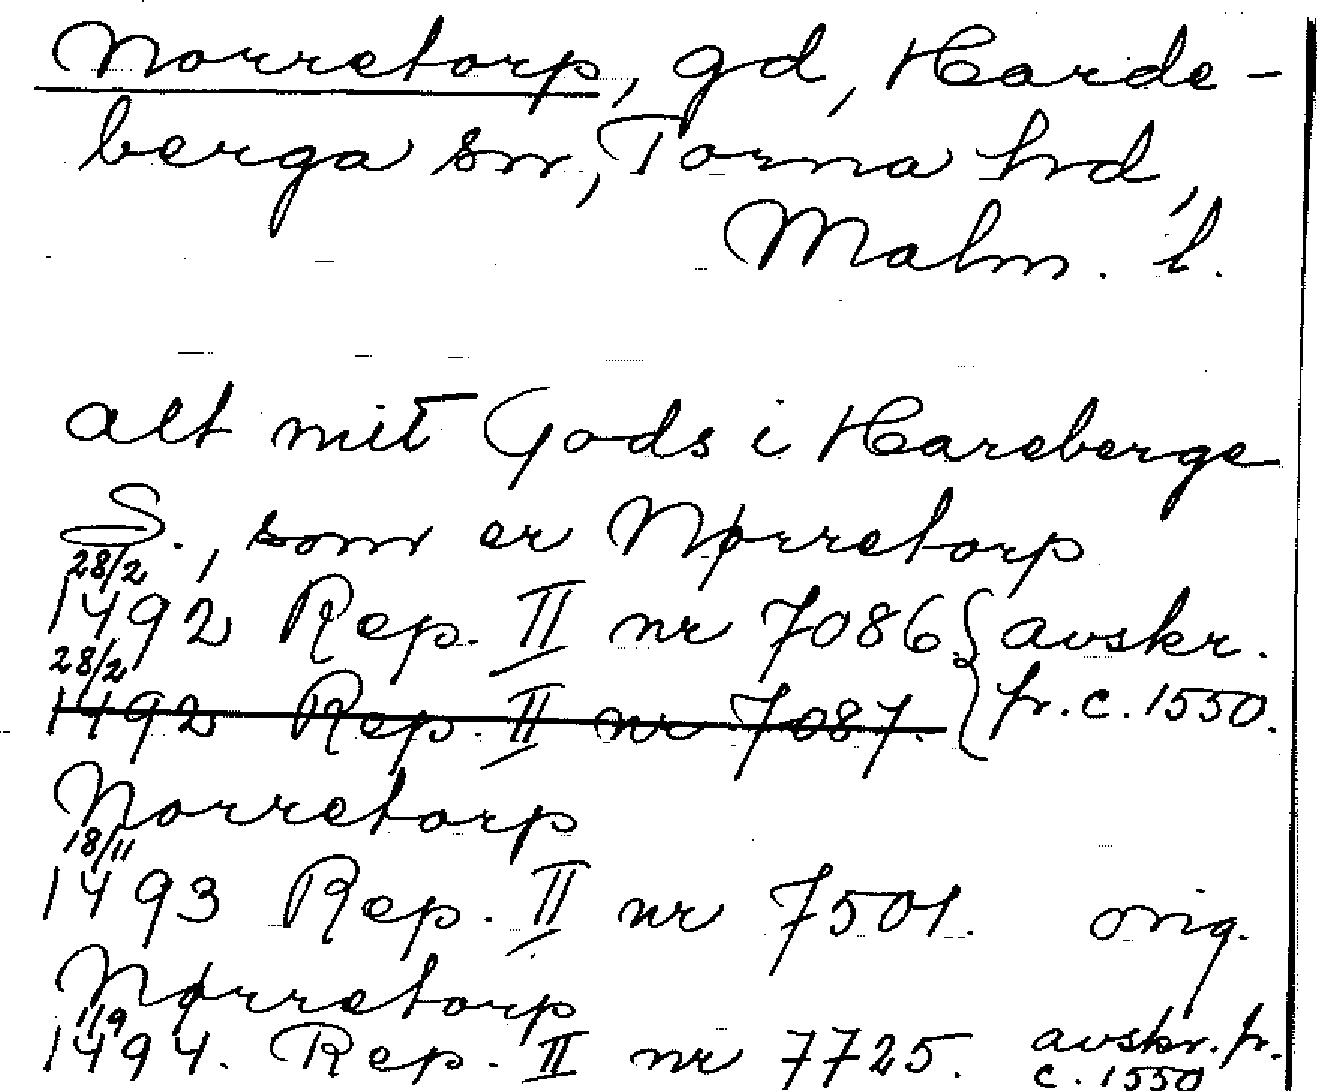 Norretorp, gd, Harde-
berga sn, Torna hrd,
Malm. l.
alt mit Gods i Hareberge
S., som er Nørretorp
28/2
1492 Rep. II nr 7086. } avskr.
28/2
1492 Rep. II nr 7087. fr. c. 1550.
Norretorp
18/11
1493 Rep. II nr 7501. orig.
Nørretorp
1/9
1494. Rep. II nr 7725. avskr. fr.
c. 1550